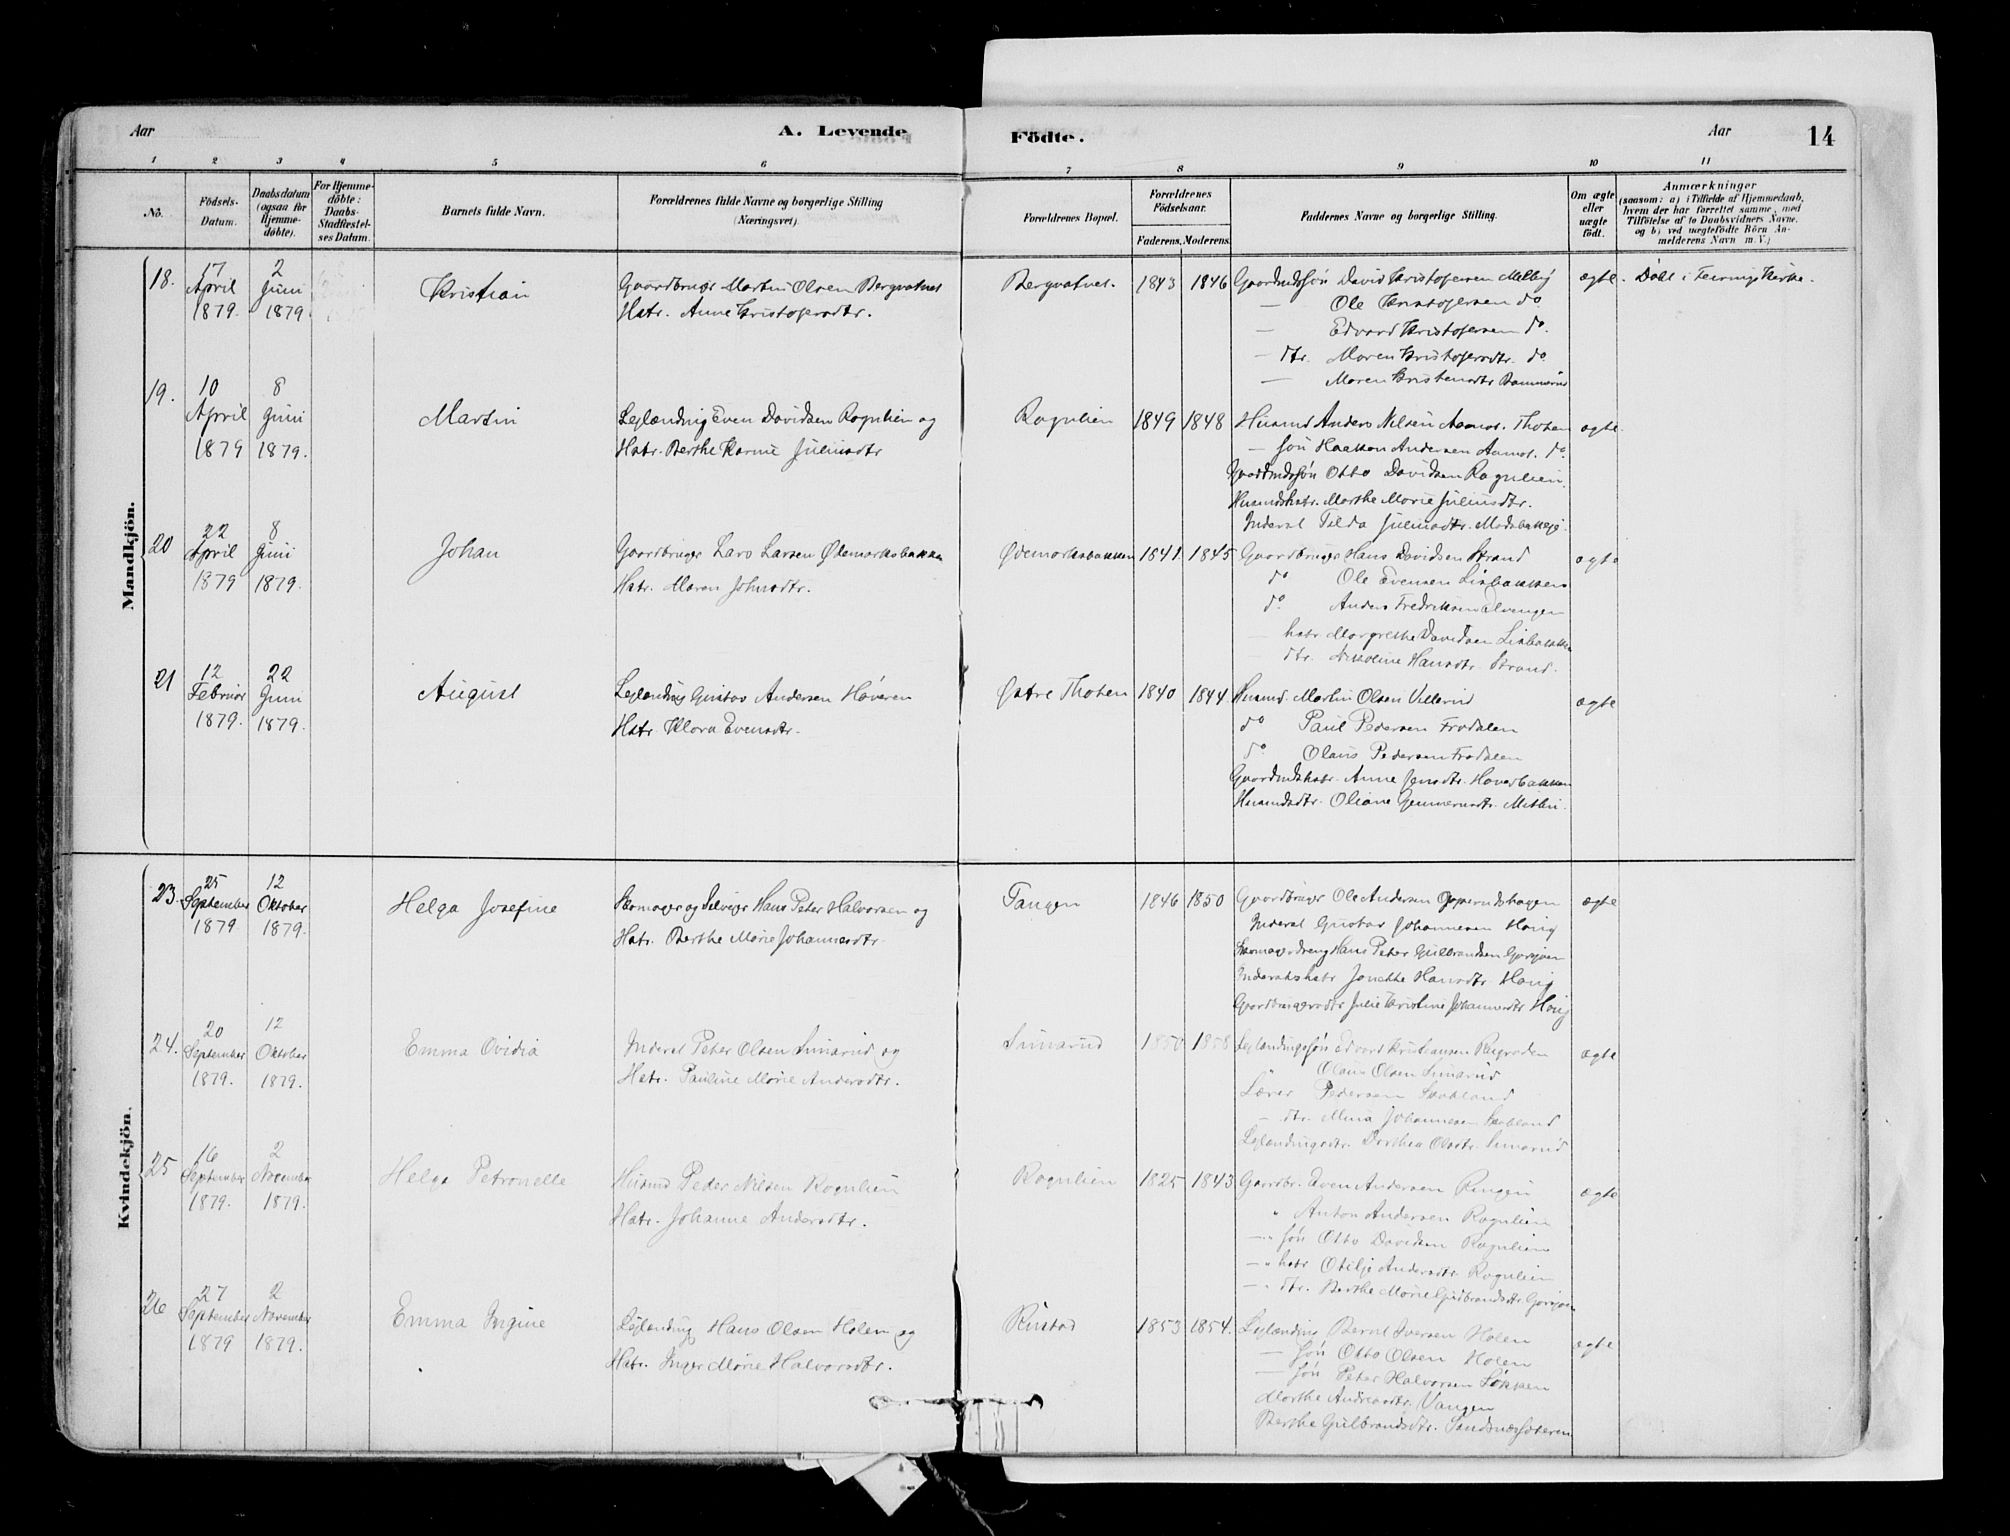 Aar
A. Levende
Födte.
Aar
14
1 2 3 4 5 6 7 8 9 10 11
No.
Födsels-Datum.
Daabsdatum (ogsaa for Hjemme-döbte).
For Hjemme-döbte: Daabs-Stadfæstel-ses Datum.
Barnets fulde Navn.
Forældrenes fulde Navne og borgerlige Stilling
(Næringsvei)
Forældrenes Bopæl.
Forældrenes Födselsaar.
Faderens. Moderens.
Faddernes Navne og borgerlige Stilling.
Om ægte eller uægte födt.
Anmærkninger
(saasom: a) i Tilfælde af Hjemmedaab,
hvem der har forrettet samme, med
Tilföielse af to Daabsvidners Navne.
og b) ved uægtefödte Börn An-
melderens Navn m. V.)
Mandkjön.
18. 17 April 1879. 2 Juni 1879. Kristian
Gaardbruger Martin Olsen Bergvatnet
Hstr. Anne Kristofersdtr.
Bergvatnet. 1843 1846
Gaardmdssøn David Kristofersen Melby
— Ole Kristofersen do
— Edvard Kristofersen do.
— dtr. Maren Kristofersdtr. do
— Maren Kristensdtr
ægte. Døbt i Feirings Kirke.
19. 10 April 1879 8 Juni 1879. Martin
Leilænding Even Davidsen Rognlien og
Hstr. Berthe Karine Juliusdtr
Rognlien 1849 1848
Husmd Anders Nilsen Aamot. Thoten
— søn Haakon Andersen Aamot. do.
Gaardmdssøn Otto Davidsen Rognlien.
Husmdshstr. Marthe Marie Juliusdtr.
Inderst Tilda Juliusdtr.
ægte.
20 22 April 1879 8 Juni 1879. Johan
Gaardbruger Lars Larsen Ødemarksbakken
Hstr. Maren Johnsdtr.
Ødemarksbakken 1841. 1845
Gaardbruger Hans Davidsen Strand
do Ole Evensen Lisbakken
do. Anders Fredriksen Elvengen
— hstr Margrethe Davidsen Lisbakken
— dtr. Nikoline Hansdtr. Strand.
ægte
21 12 Februar 1879. 22 Juni 1879. August
Leilænding Gustav Andersen Høveren
Hstr. Klara Evensdtr.
Østre Thoten 1840 1844.
Husmd. Martin Olsen Villerud
do Paul Pedersen Frodalen
do. Olaus Pedersen Frodalen
Gaardmdshstr. Anne Jensdtr. Hovedbakken
Husmdsdtr. Oliane
ægte
Kvindekjön.
23. 25 September 1879. 12 Oktober 1879. Helga Josefine
Skomager og Selveier Hans Peter Halvorsen og
Hstr. Berthe Marie Johannesdtr.
Tangen 1846 1850
Gaardbruger Ole Andersen
Inderst Gustav Johannesen Honig
Skomagerdreng Hans Peter Gulbrandsen
Inderstshstr Jonette Hansdtr Honig
Gaardbrugersdtr Julie Kristine Johannesdtr Honig
ægte
24. 20 September 1879. 12 Oktober 1879. Emma Ovidia
Inderst Peter Olsen Linarud og
Hstr. Pauline Marie Andersdtr.
Linarud 1850 1858
Leilændingssøn Edvard Kristiansen
" Olaus Olsen Linarud
Lærer Pedersen Skabland
— dtr. Mina Johannesen Skabland
Leilændingsdtr. Dorthea Olsdtr. Linarud
ægte
25 16 September 1879. 2 November 1879. Helga Petronelle
Husmd Peder Nilsen Rognlien
Hstr. Johanne Andersdtr.
Rognlien 1825 1843
Gaardbr. Even Andersen Ringen
" Anton Andersen Rognlien
—" søn Otto Davidsen Rognlien
—" hstr Otilje Andersdtr Rognlien
—" dtr. Berthe Marie Gulbrandsdtr.
ægte
26 27 September 1879 2 November 1879. Emma Ingine
Leilænding Hans Olsen Holen og
Hstr. Inger Marie Halvorsdtr.
Rustad 1853 1854.
Leilænding Bernt Iversen Holen
— søn Otto Olsen Holen
— søn Peter Halvorsen Løkken
Marthe Andreasdtr. Vangen
Berthe Gulbrandsdtr.
ægte